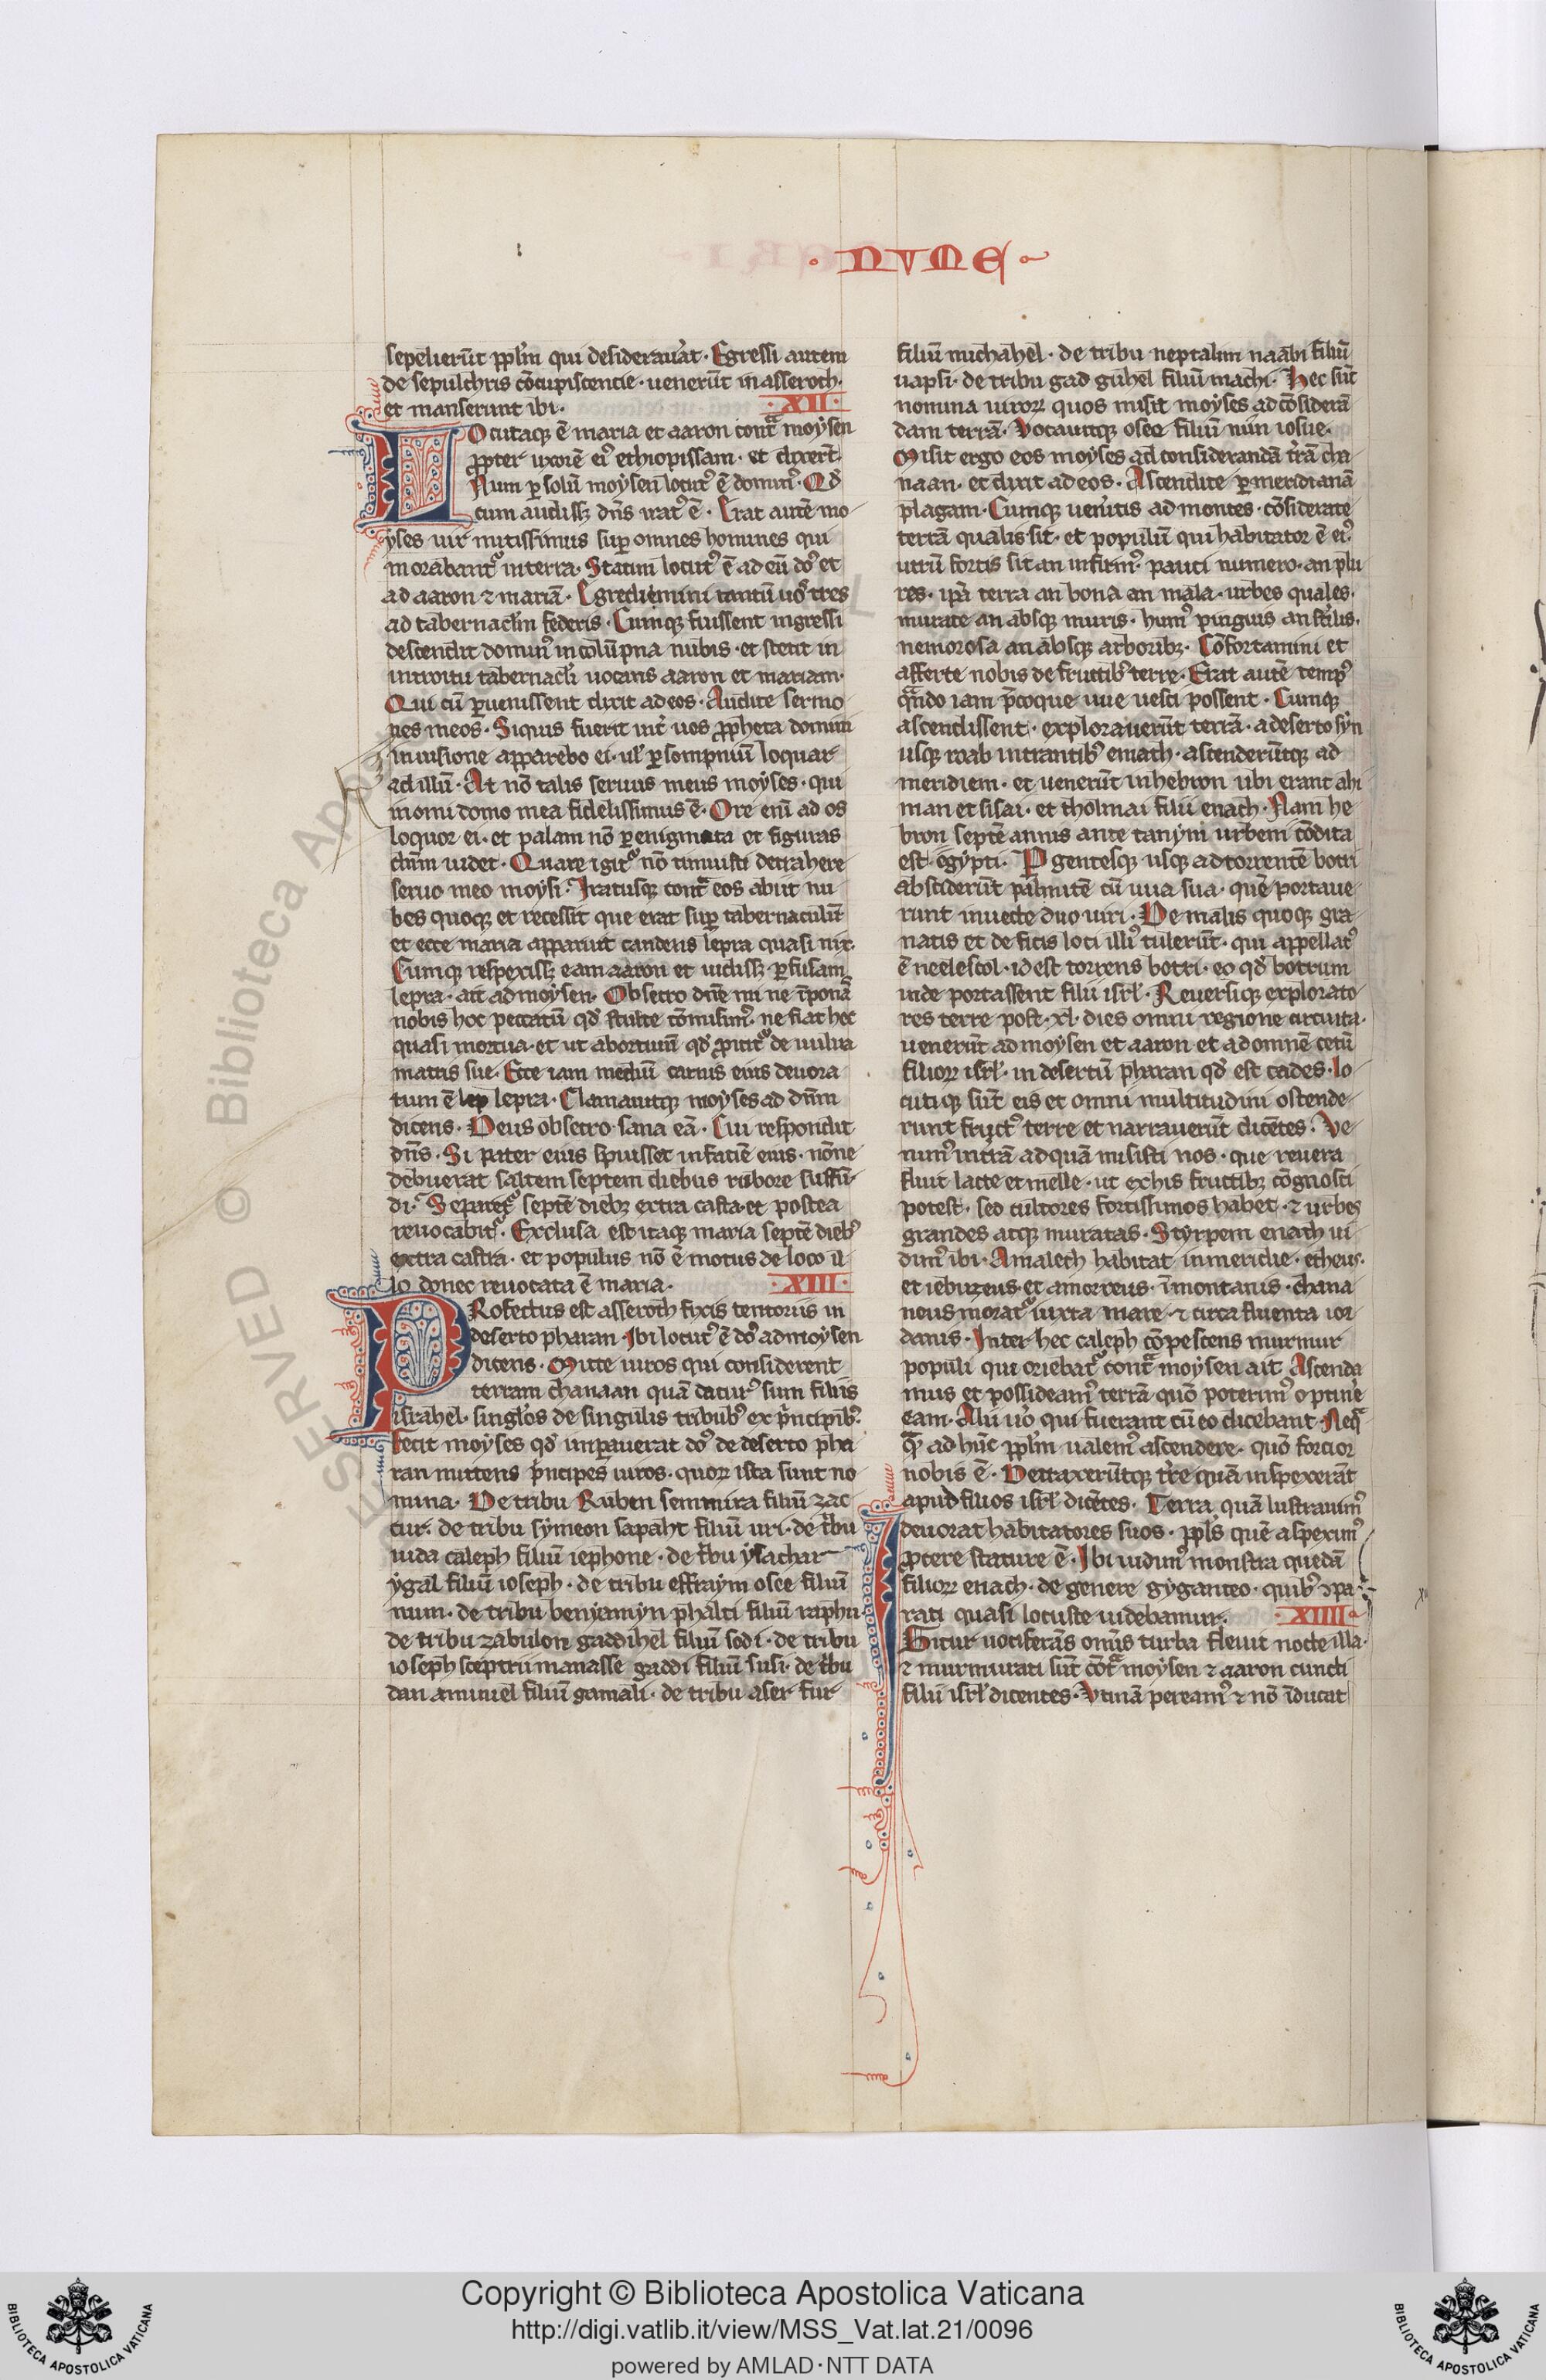 · NVME ·
sepelierūt pplm̄ qui desiderauāt · Egressi autem
de sepulchris ꝯcupiscentie · uenerūt in asseroth ·
et manserunt ibi · XII ·
LOcutaqꝫ ē maria et aaron contͣ moysen
ꝓpter uxorē eiꝰ ethiopissam · et dixerūt
Num ꝑ solū moysen locutꝰ ē dominꝰ · Qd̄
cum audissꝫ dn̄s iratꝰ ē · Erat autē mo
yses uir mitissimus suꝑ omnes homines qui
morabantᷣ in terra · Statim locutꝰ ē ad eū dn̄s et
ad aaron ⁊ mariā · Egredimini tantū uos tres
ad tabernaclm̄ federis · Cumqꝫ fuissent ingressi
descendit dominꝰ in colūpna nubis · et stetit in
introitu tabernacli uocans aaron et mariam ·
Qui cū ꝑuenissent dixit ad eos · Audite sermo
nes meos · Siquis fuerit int̄ uos ꝓpheta domini
in uisione apparebo ei · ul̄ ꝑ sompnium loquar
ad illū · At nō talis seruus meus moyses · qui
in omi domo mea fidelissimus ē · Ore enī ad os
loquor ei · et palam nō ꝑ enigmata et figuras
dn̄m uidet · Quare igitᷣ nō timuisti detrahere
seruo meo moysi · Iratusqꝫ contͣ eos abiit nu
bes quoqꝫ et recessit que erat suꝑ tabernaculū
et ecce maria apparuit candens lepra quasi nix ·
Cumqꝫ respexissꝫ eam aaron et uidissꝫ ꝑfusam
lepra · ait ad moysen · Obsecro dn̄e mi ne īponas
nobis hoc peccatū qd̄ stulte cōmisimꝰ · ne fiat hec
quasi mortua · et ut abortiuū qd̄ ꝓicitᷣ de uulua
matris sue · Ecce iam mediū carnis eius deuora
tum ē lep lepra · Clamauitqꝫ moyses ad dn̄m
dicens · Deus obsecro sana eā · Cui respondit
dn̄s · Si pater eius spuisset in faciē eius · nōne
debuerat saltem septem diebus rubore suffū
di · Separetᷣ septē diebꝫ extra castͣ · et postea
reuocabitᷣ · Exclusa est itaqꝫ maria septē diebꝰ
extra castra · et populus nō ē motus de loco il
lo donec reuocata ē maria · XIII ·
PRofectus est asseroth fixis tentoriis in
deserto pharan · Ibi locutꝰ ē dn̄s ad moysen
dicens · Mitte uiros qui considerent
terram chanaan quā daturꝰ sum filiis
israhel · singlos de singulis tribubꝰ ex pͥncipibꝰ ·
Fecit moyses qd̄ imꝑauerat dn̄s de deserto pha
ran mittens pͥncipes uiros · quoꝝ ista sunt no
mina · De tribu Ruben semmira filiū zac
cur · de tribu symeon sapaht filiū uri · de tͥbu
iuda caleph filiū iephone · de tͥbu ysachar
ygal filiū ioseph · de tribu effraym osee filiū
num · de tribu beniamyn phalti filiū raphu ·
de tribu zabulon geddihel filiū sodi · de tribu
ioseph sceptri manasse gaddi filiū susi · de tͥbu
dan amiuiel filiū gamali · de tribu aser stur
filiū michahel · de tribu neptalim naabi filiū
uapsi · de tribu gad guhel filiū machi · Hec sūt
nomina uiroꝝ quos misit moyses ad cōsiderā
dam terrā · Vocauitqꝫ osee filiū nun iosue ·
Misit ergo eos moyses ad considerandā tr̄ā cha
naan · et dixit ad eos · Ascendite ꝑ meridianā
plagam · Cumqꝫ ueneritis ad montes · cōsiderate
terrā qualis sit · et populū qui habitator ē eiꝰ ·
utrū fortis sit an infirmꝰ · pauci numero · an plu
res · ipā terra an bona an mala · urbes quales ·
murate an absqꝫ muris · humꝰ pinguis an sterilis ·
nemorosa an absqꝫ arboribꝫ · Cōfortamini et
afferte nobis de fructibꝰ terre · Erat autē tempꝰ
qͣndo iam pͥcoque uue uesci possent · Cumqꝫ
ascendissent · explorauerūt terrā · a deserto syn
usqꝫ roab intrantibꝰ emath · ascenderūtqꝫ ad
meridiem · et uenerūt in hebron ubi erant ahi
man et sisai · et tholmai filii enach · Nam he
bron septē annis ante tanym urbem cōdita
est egypti · Pgentesqꝫ usqꝫ ad torrentē botri
absciderūt palmitē cū uua sua · quē portaue
runt in uecte duo uiri · De malis quoqꝫ gra
natis et de ficis loci illiꝰ tulerūt · qui appellatꝰ
ē neelescol · id est torrens botri · eo qd̄ botrum
inde portassent filii isrl̄ · Reuersiqꝫ explorato
res terre post · xl · dies omni regione circuita ·
uenerūt ad moysen et aaron et ad omnē cetū
filioꝝ isrl̄ · in desertū pharan qd̄ est cades · lo
cutiqꝫ sūt eis et omni multitudini ostende
runt fructꝰ terre et narrauerūt dicētes · Ve
nimꝰ in tr̄ā ad quā misisti nos · que reuera
fluit lacte et melle · ut ex his fructibꝫ cōgnosci
potest · sed cultores fortissimos habet · ⁊ urbes
grandes atqꝫ muratas · Styrpem enach ui
dimꝰ ibi · Amalech habitat in meridie · etheus ·
et iebuzeus et amorreus · ī montanis · chana
neus moratᷣ iuxta mare · ⁊ circa fluenta ior
danis · Inter hec caleph cōpescens murmur
populi qui oriebatᷣ contͣ moysen ait · Ascenda
mus et possideamꝰ terrā quō poterimꝰ optine
eam · Alii uō qui fuerant cū eo dicebant · Neqͣ
qͣm ad hūc pplm̄ ualemꝰ ascendere · quō forcior
nobis ē · Detraxerūtqꝫ tr̄e quā inspexerāt
apud filios isrl̄ dicētes · Terra quā lustrauimꝰ
deuorat habitatores suos · ppl̄s quē aspeximꝰ
ꝓcere stature ē · Ibi uidimꝰ monstra quedā
filioꝝ enach · de genere gyganteo · quibꝰ ꝯpa
rati quasi locuste uidebamur · XIIII ·
IGitur uociferās omīs turba fleuit nocte illa ·
⁊ murmurati sūt cōtͣ moysen ⁊ aaron cuncti
filii isrl̄ dicentes · Vtinā pereamꝰ ⁊ nō īducat
© Biblioteca Apo
SERVED
Copyright © Biblioteca Apostolica Vaticana
http://digi.vatlib.it/view/MSS_Vat.lat.21/0096
powered by AMLAD·NTT DATA
BIBLIOTECA APOSTOLICA VATICANA
BIBLIOTECA APOSTOLICA VATICANA